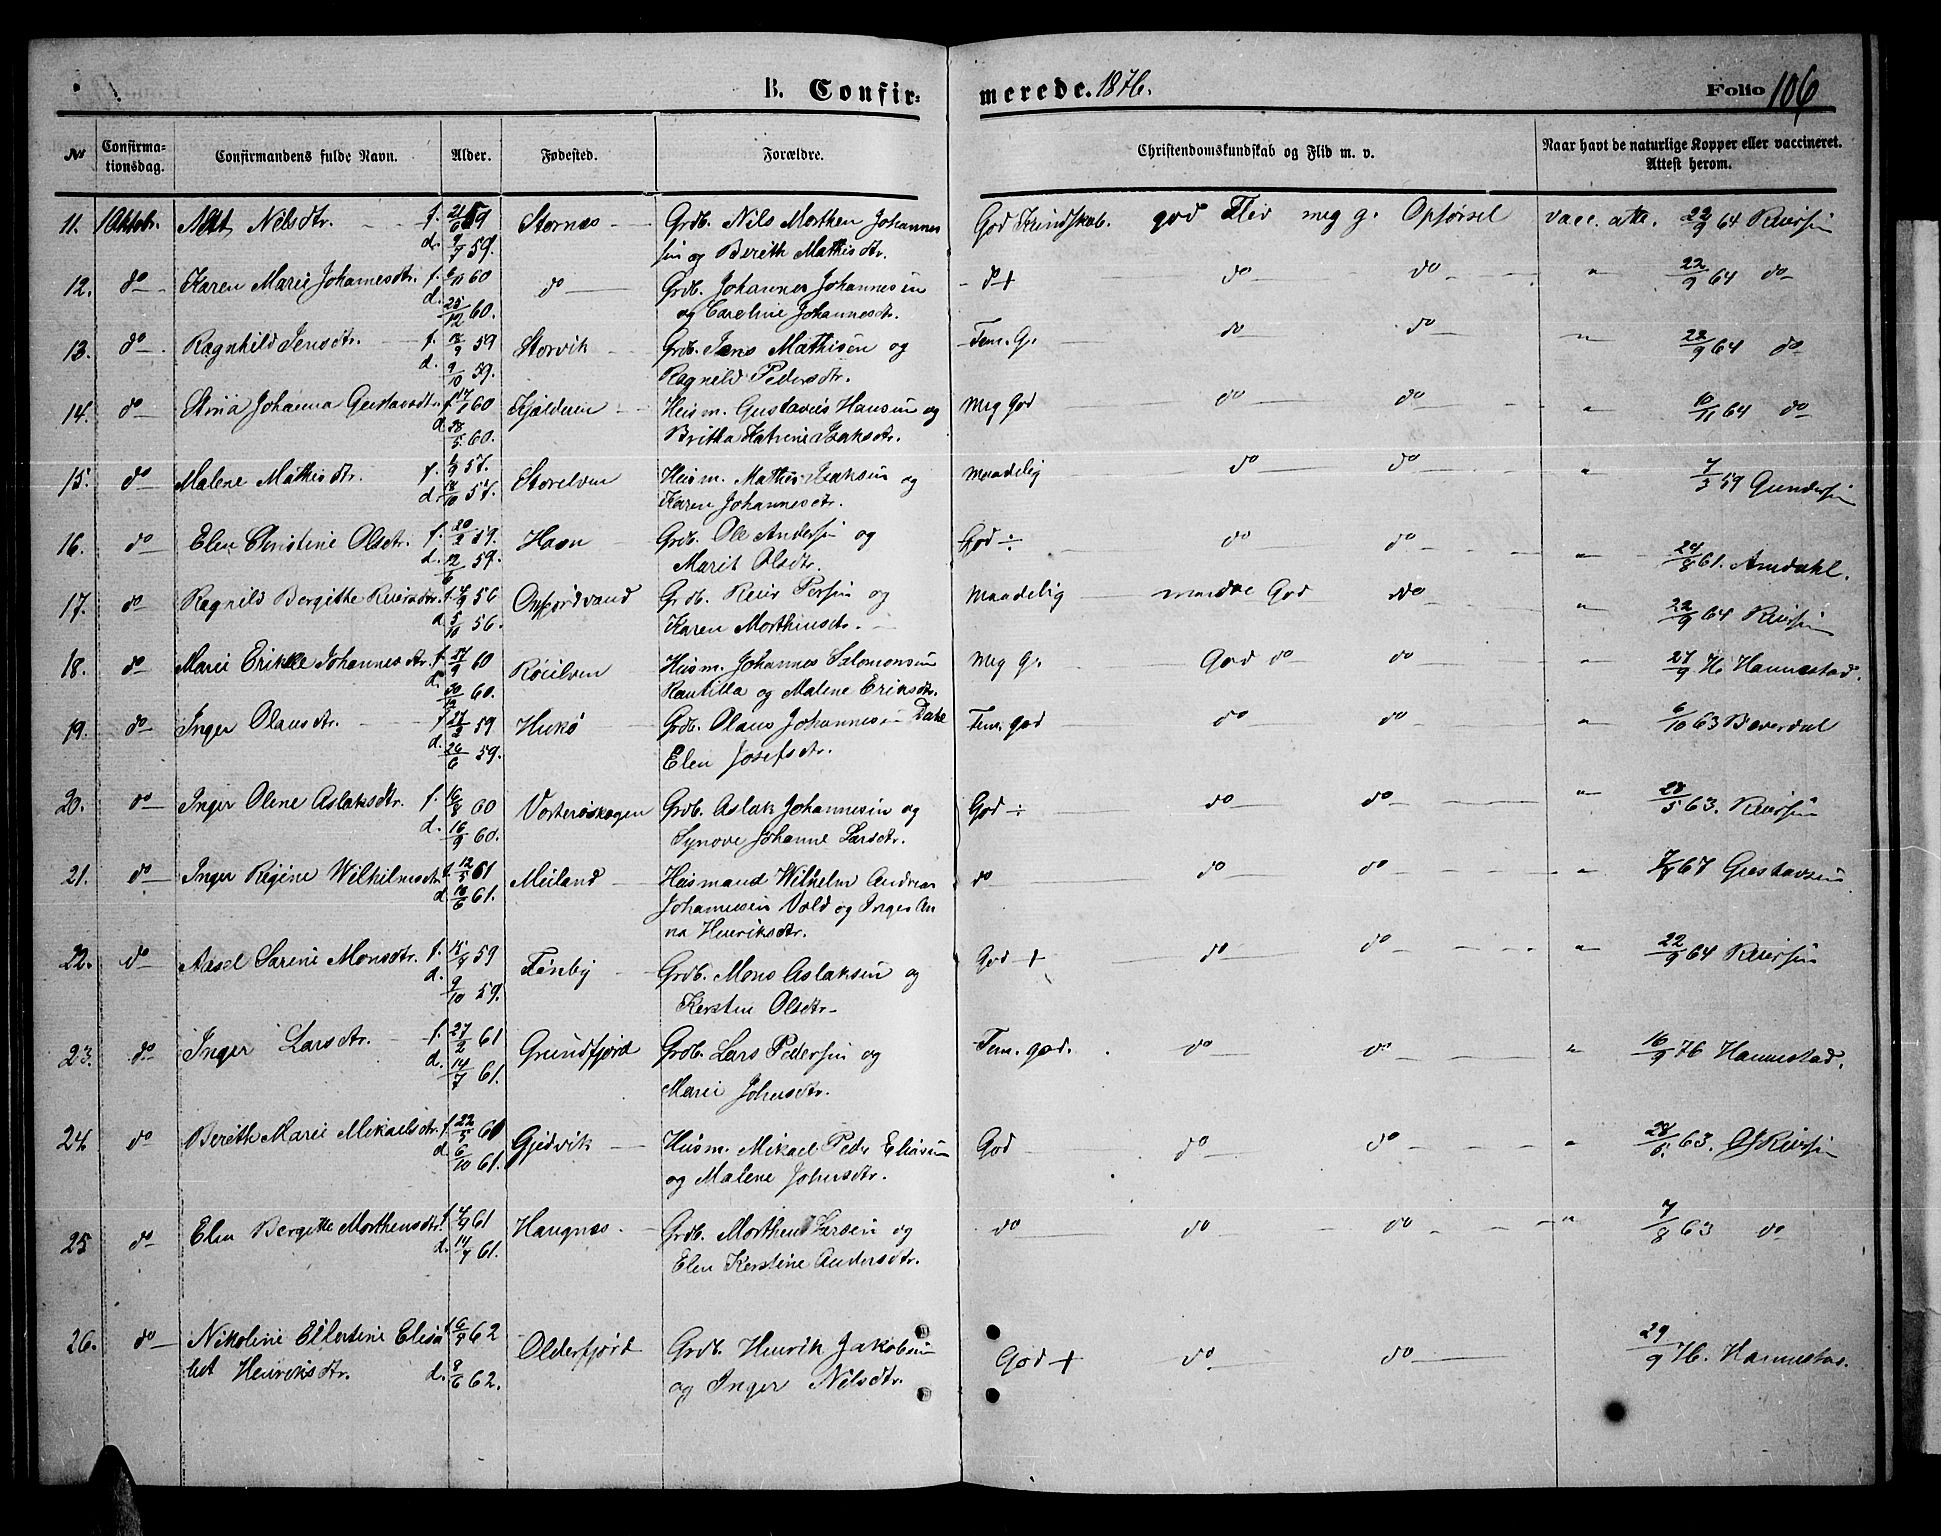 B. Confirmerede. 1876. Folio 106
No Confirmationsdag. Confirmandens fulde Navn. Alder. Fødested. Forældre. Christendomskundskab og Flid m. v. Naar havt de naturlige Kopper eller vaccineret. Attest herom.
11. 1 Oktobr. Nilsdtr. f. 21/6 59 Stornæs Grdb. Nils Morthen Johannes God Kundskab. god Flid meg g. Opførsel vacc. att. 22/9 64 Reiersen
d. 9/7 59. sen og Berith Mathisdtr.
12. do Karen Marie Johannesdtr. f. 60 do Grdb. Johannes Johannesen do + do do " 22/9 64 do
d. 25/12 60. og Caroline Johannesdtr.
13. do Ragnhild Jensdtr. f. 59 Storvik Grdb. Jens Mathisen og Tem. G. do do " 22/9 64 do
d. 9/10 59. Ragnild Pedersdtr.
14. do Johanna Gustavsdtr. f. 17/1 60 Kjelderen Husm. Gustavus Hansen og Meg God do do " 10/11 64 do
d. 28/5 60. Britha Katrine Isaksdtr.
15. do Malene Mathisdtr. f. 57. Storelven Husm. Mathis Isaksen og Maadelig do do " 7/3 59 Gundersen
d. 18/10 57. Karen Johannesdtr.
16. do Elen Christine Olsdtr. f. 20/2 59. Havn Grdb. Ole Andersen og God ÷ do do " 24/8 61. Amdahl.
d. 12/6 59. Marit Olsdtr.
17. do Ragnild Bergithe Reiersdtr. f. 56 Oxfjordvand Grdb. Reier Persen og Maadelig mindre God do " 22/9 64 Reiersen
d. 5/10 56. Karen Morthensdtr.
18. do Marie Erikke Johannesdtr. f. 27/9 60 Røielven Husm. Johannes Salomonsen Meg G. God do do " 27/9 76 Hannestad.
d. 30/12 60. Rautilla og Malene Eriksdtr.
19. do Inger Olausdtr. f. 27/2 59 Hukø Grdb. Olaus Johannesen Dahl Tem. god do do " 6/10 63 Bæverdal
d. 26/6 59. Elen Josefsdtr.
20. do Inger Olene Aslaksdtr. f. 16/8 60 Vorterøskogen Grdb. Aslak Johannesen og God ÷ do do " 28/5 63. Reiersen
d. 16/9 60. Synove Johanne Larsdtr.
21. do Inger Regine Wilhelmsdtr. f. 12/5 61 Meiland Husmand Wilhelm Andreas do do do " 67 Gustavsen
d. 18/6 61. Johannesen Vold og Inger An
na Henriksdtr.
22. do Aasel Sarine Monsdtr. f. 59 Tønby Grdb. Mons Aslaksen og God + do do " 22/9 64 Reiersen
d. 9/10 59. Kersten Olsdtr.
23. do Inger Larsdtr. f. 27/2 61 Grundfjord Grdb. Lars Pedersen og Tem. god. do do " 16/9 76 Hannestad.
d. 14/7 61. Marie Johnsdtr.
24. do Berith Marie Mikaelsdtr. f. 22/5 61 Gjedvik Husm. Mikael Peder Eliasen God do do " 63. Reiersen
d. 6/10 61. og Malene Johnsdtr.
25 do Elen Bergitte Morthensdtr. f. 61 Haugnæs Grdb. Morthen Larsen og do do do " 7/8 63 do
d. 14/7 61. Elen Kerstine Andersdtr.
26. do Nikoline Ellertine Elisa f. 62 Olderfjord Grdb. Henrik Jakobsen God + do do 29/9 76. Hannestad.
bet Henriksdtr. d. 8/6 62. og Inger Nilsdtr.